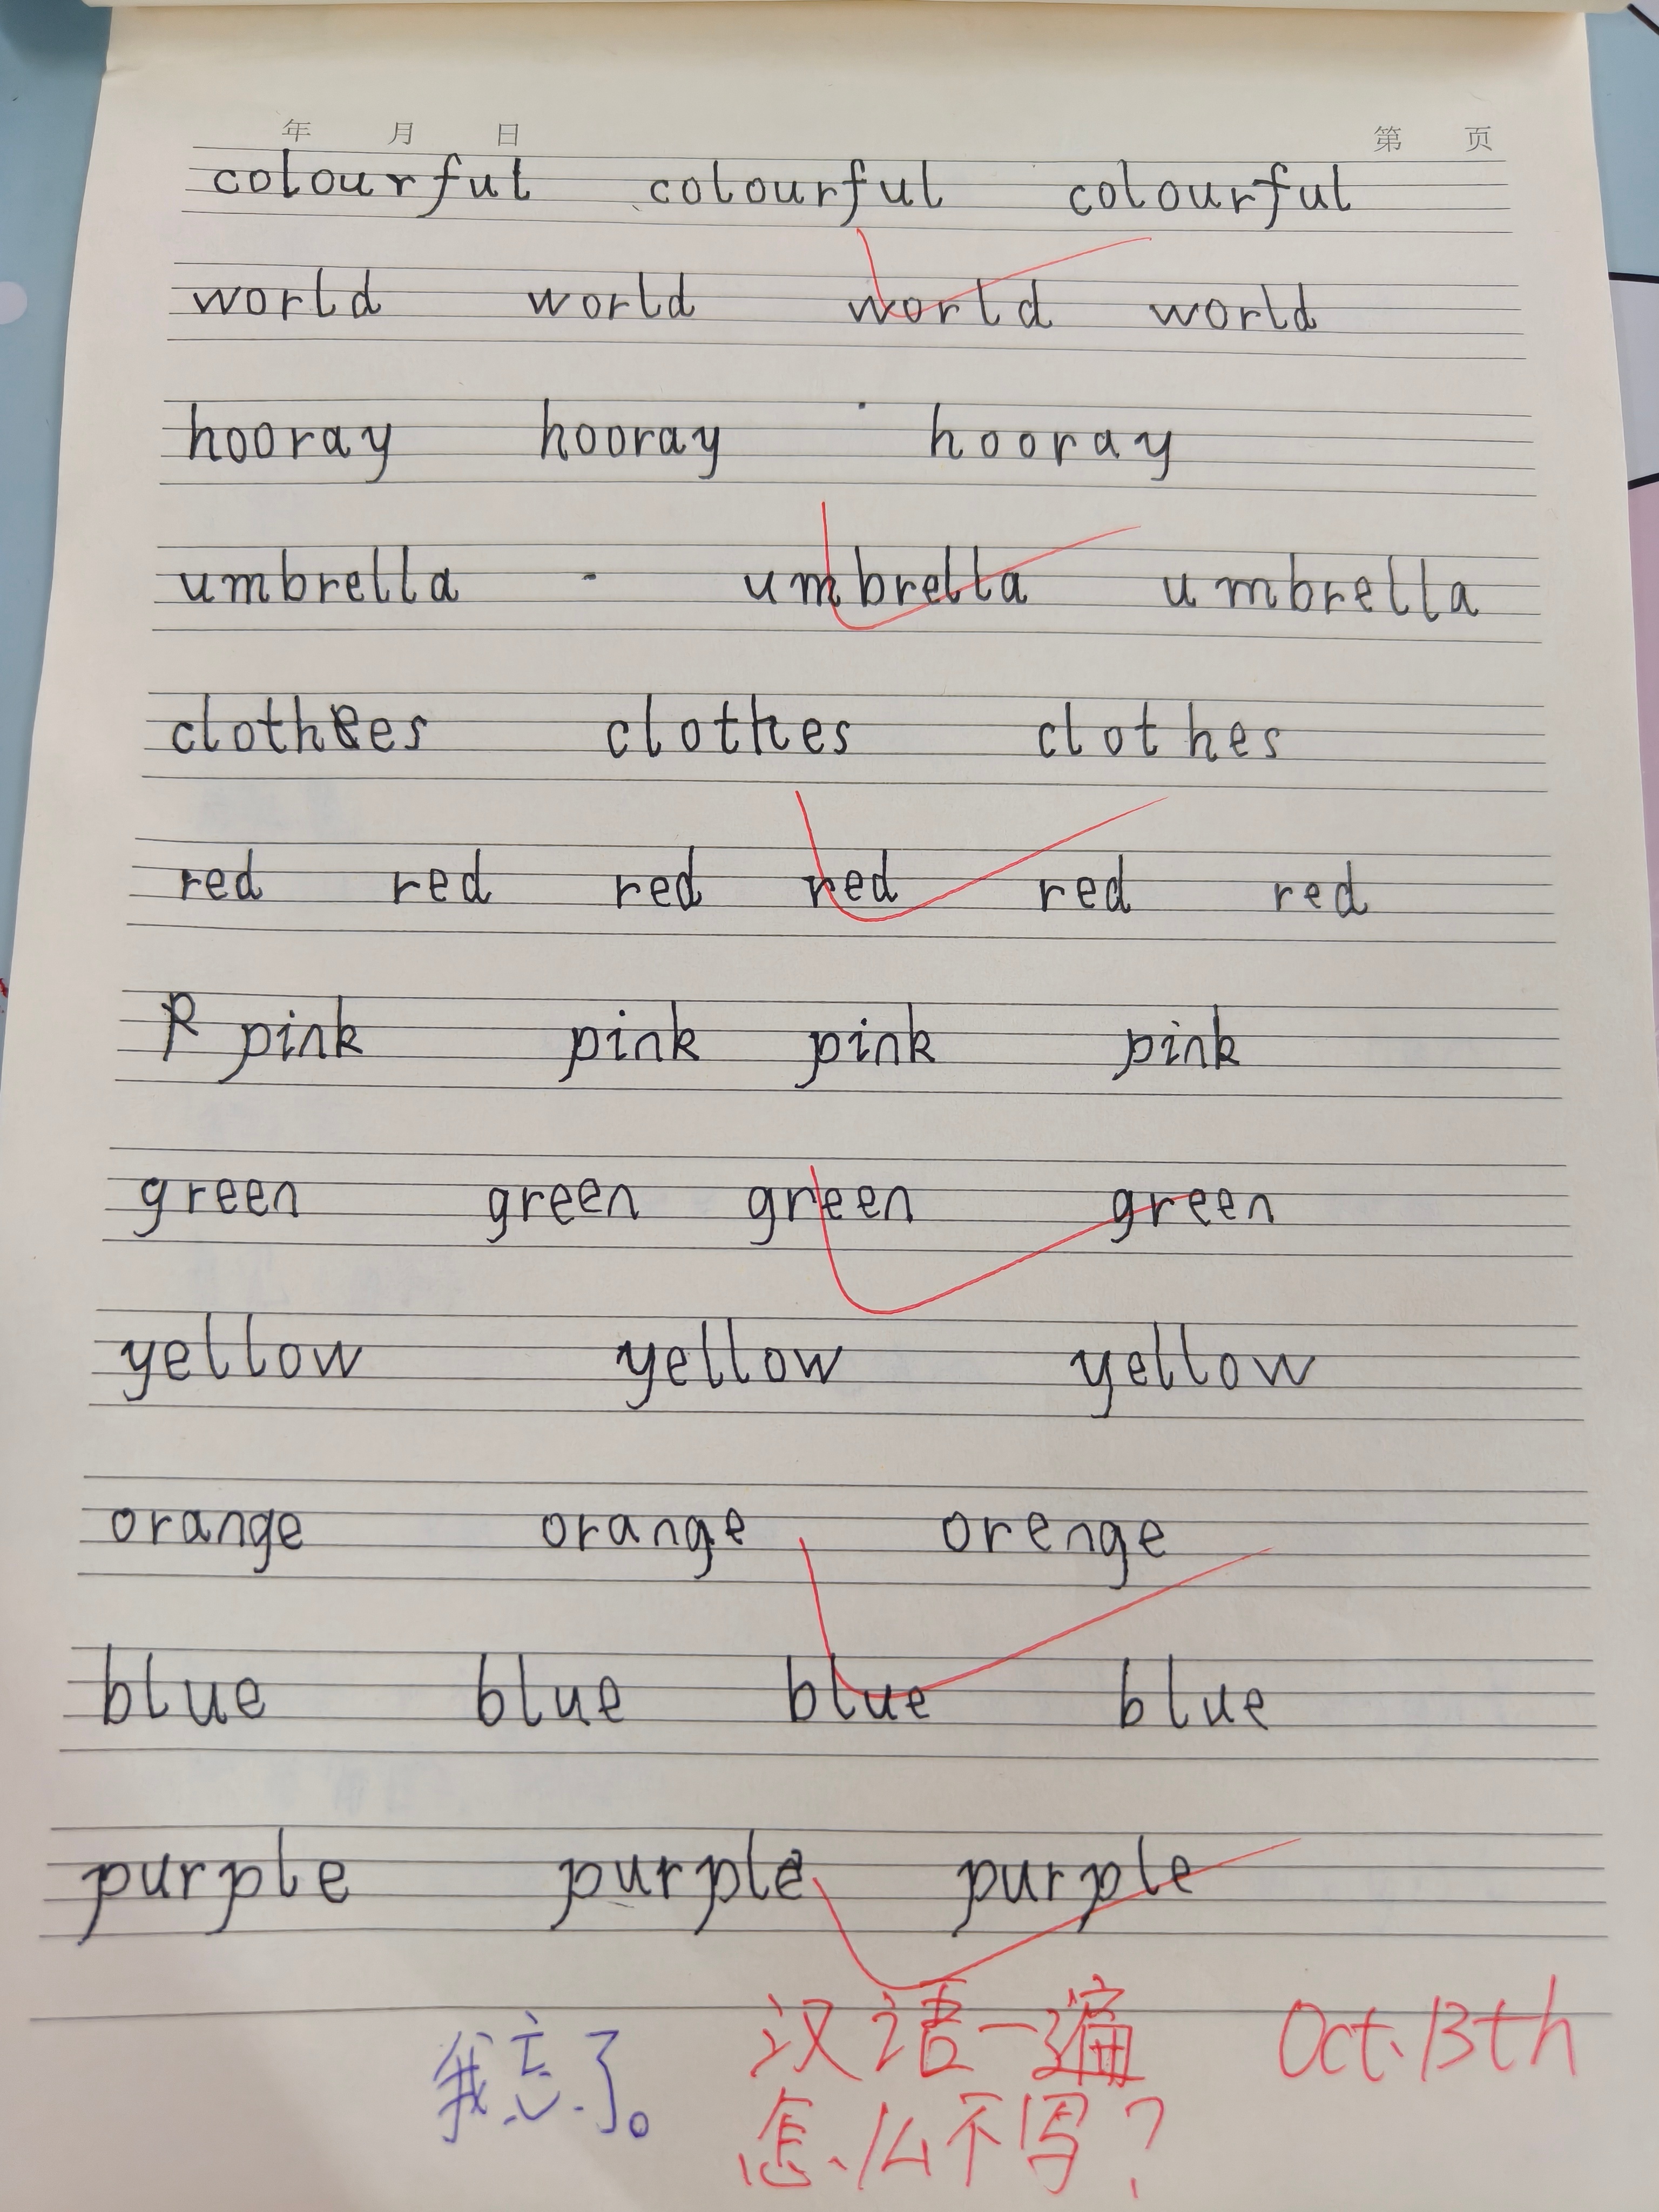 年 月 日 第 页
colourful colourful colourful
world world world world
hooray hooray hooray
umbrella umbrella umbrella
clothes clothes clothes
red red red red red red
pink pink pink pink
green green green green
yellow yellow yellow
orange orange orenge
blue blue blue blue
purple purple purple
汉语一遍 Oct.13th
我忘了。
怎么不写?